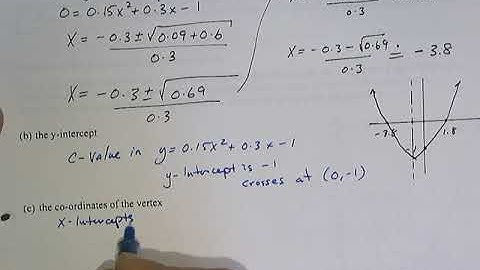 0 = 0.15x² + 0.3x - 1
x = -0.3 ± √0.09 + 0.6
0.3
x = -0.3 ± √0.69
0.3
0.3
x = -0.3 - √0.69 ≐ -3.8
0.3
-3.8
1.8
(b) the y-intercept
C-value in y = 0.15x² + 0.3x - 1
y-Intercept is -1
crosses at (0,-1)
(c) the co-ordinates of the vertex
x-Intercepts